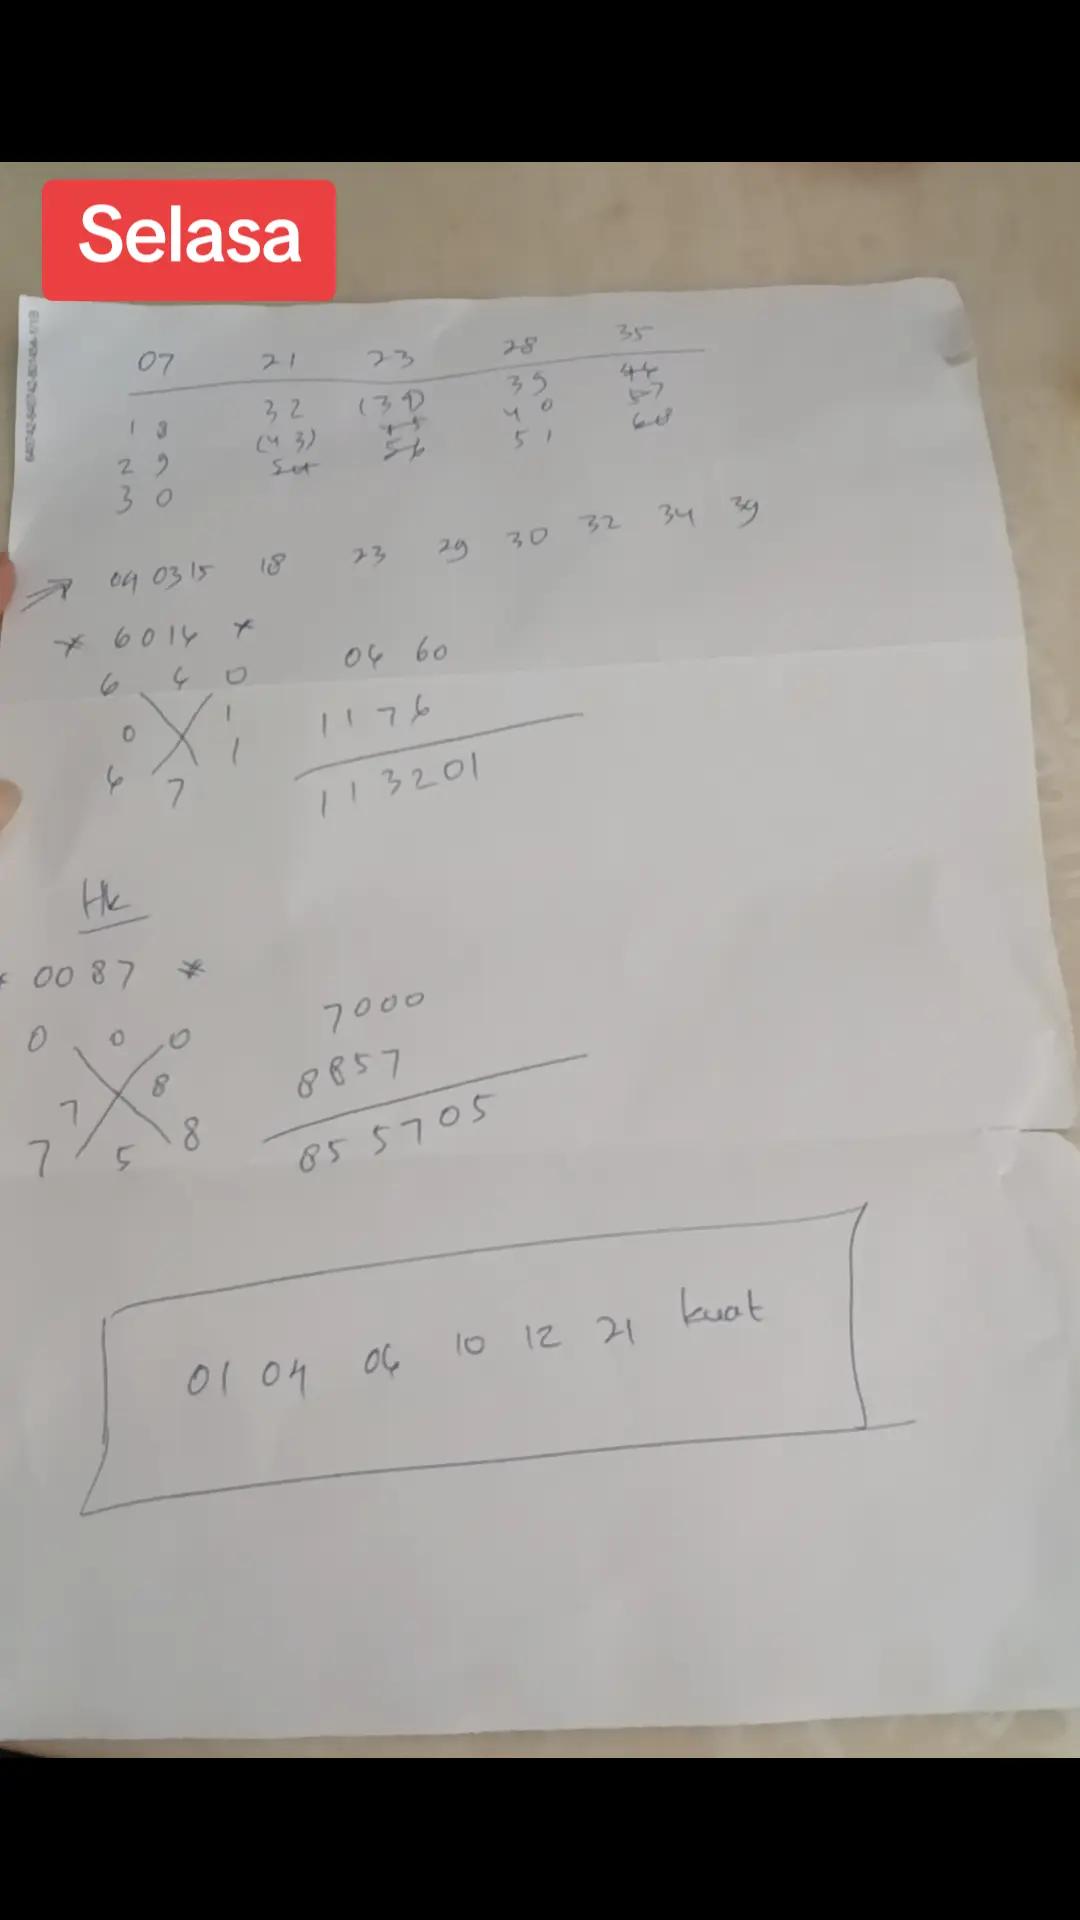 Selasa
07 21 23 28 35
18 32 (34) 39 44
29 (43) 45 40 57
30 54 56 51 68
04 03 15 18 23 29 30 32 34 39
* 6014 *
6 4 0 04 60
0 1 1176
6 7 1 113201
Hk
* 0087 *
0 0 0 7000
7 8 8857
7 5 8 855705
01 04 06 10 12 21 kuat